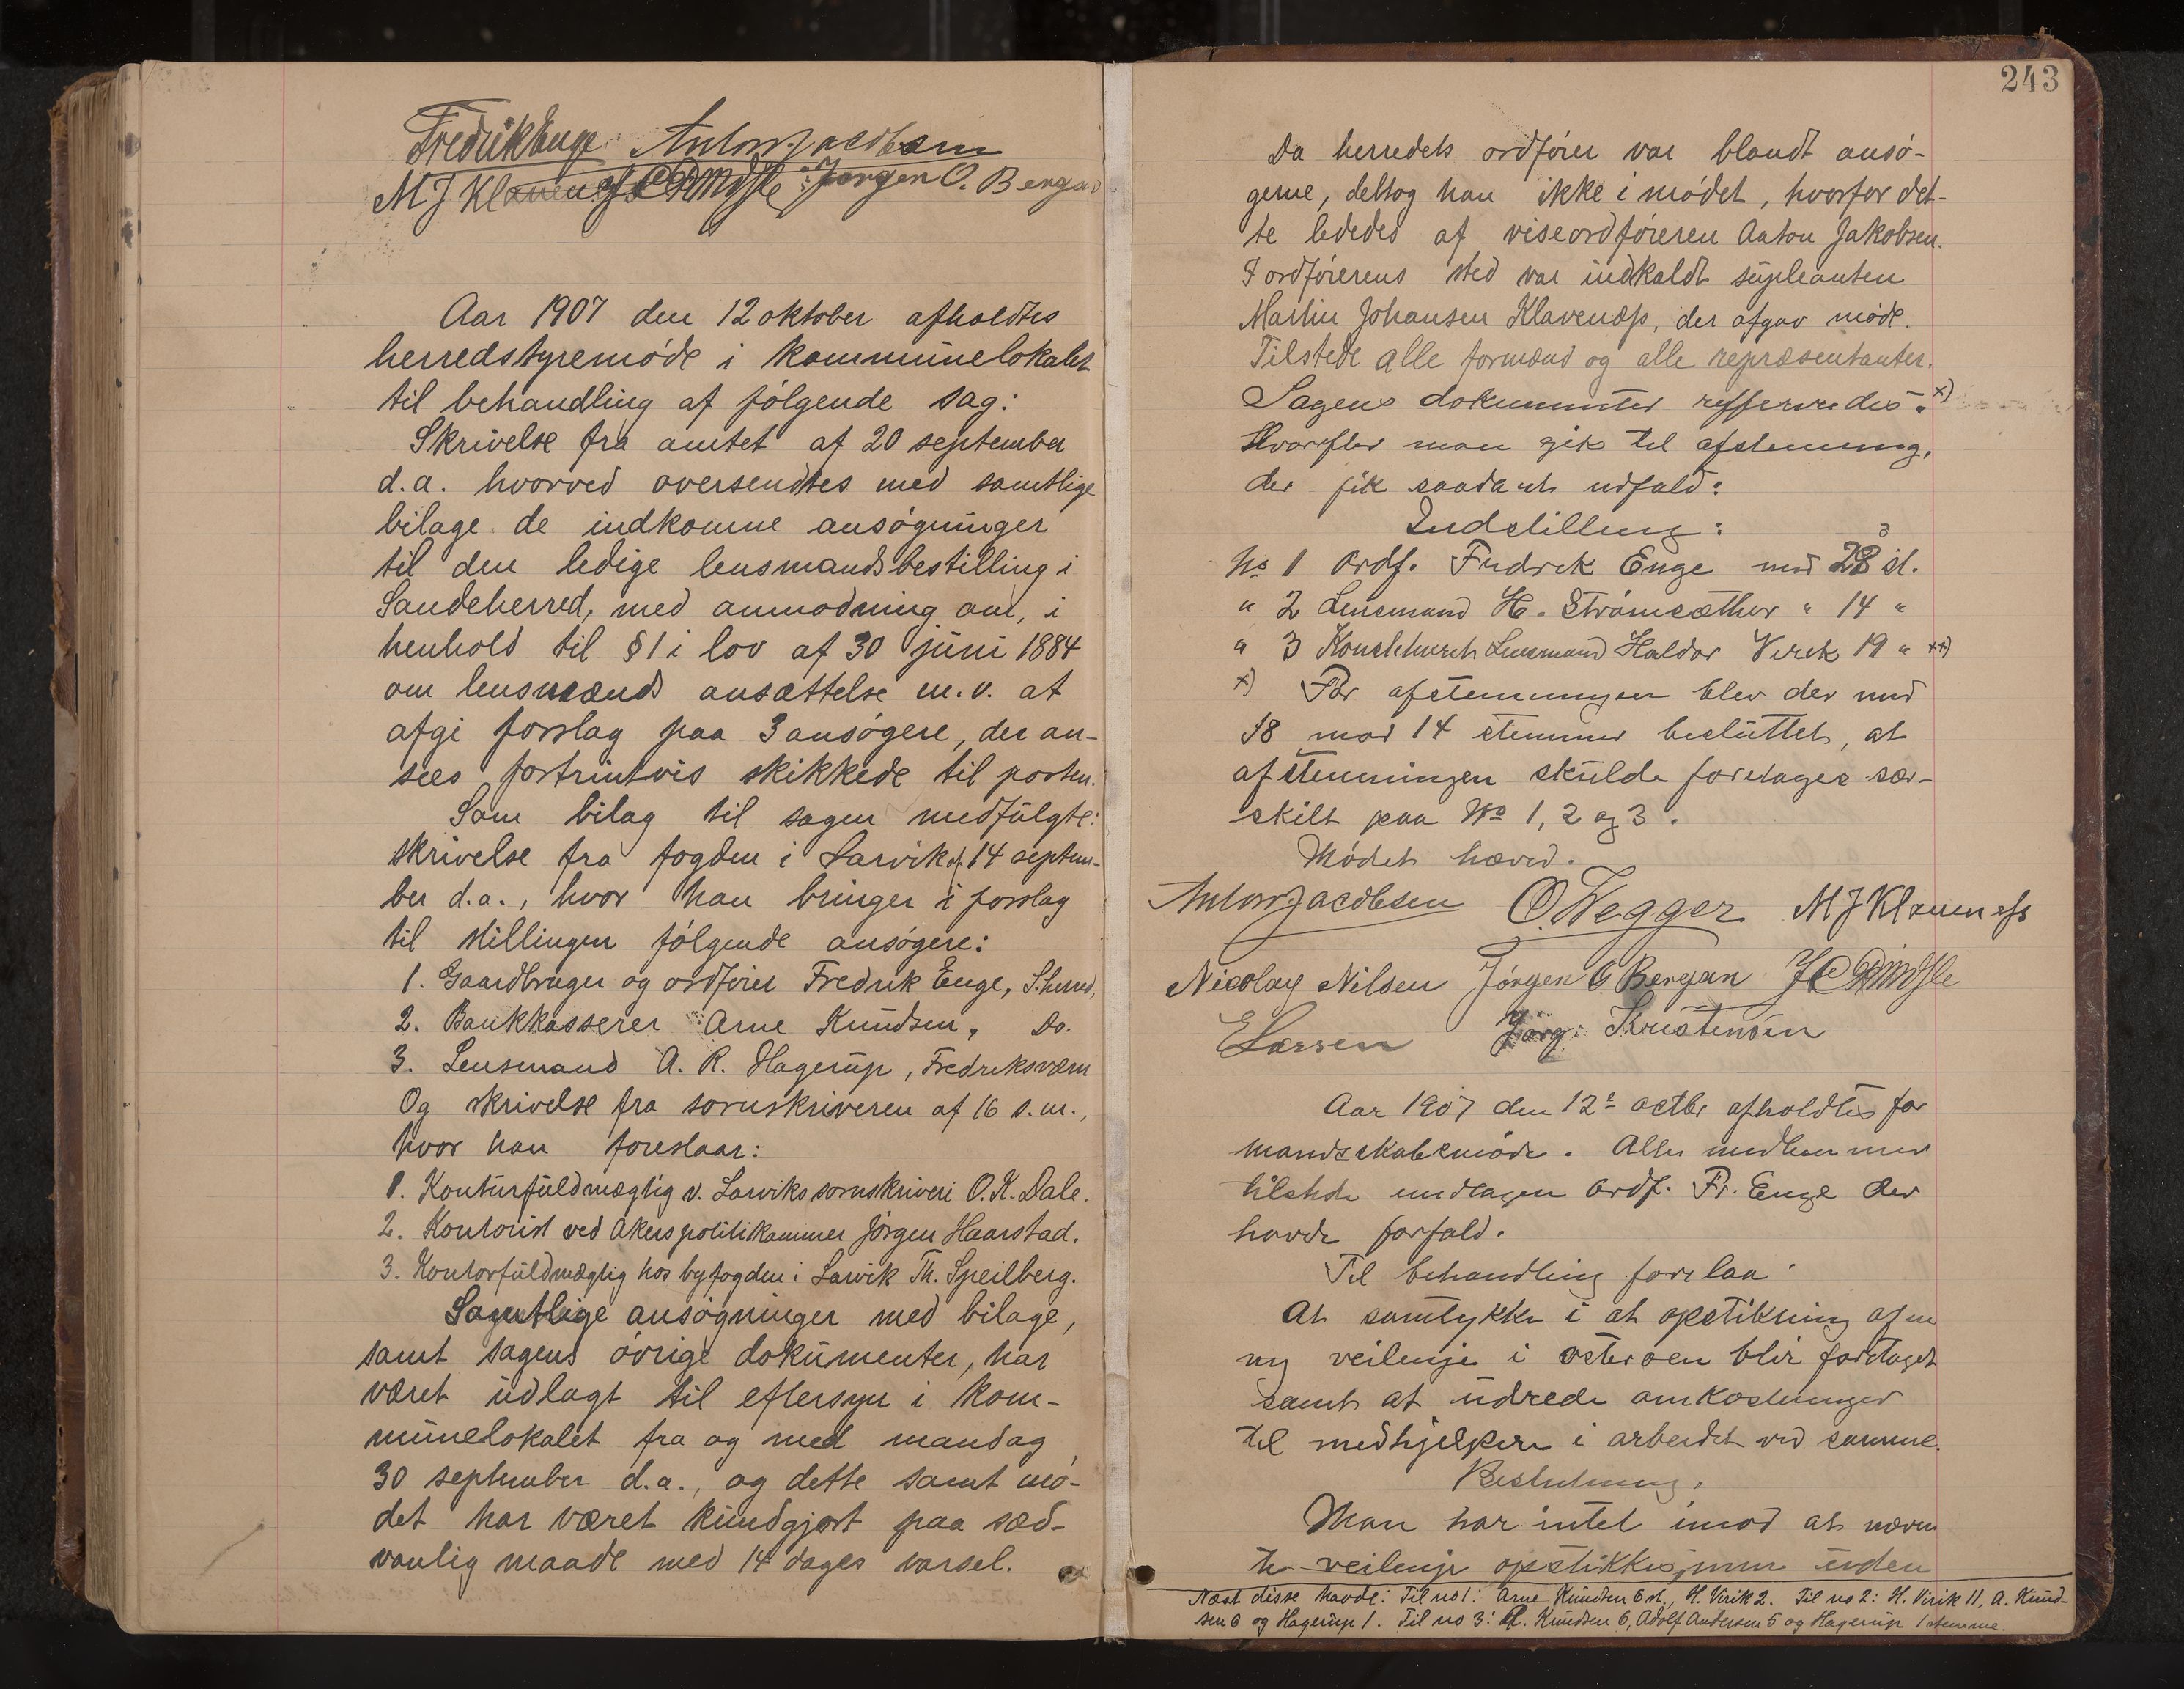 Fredrik Enge Anton Jacobsen
M J Klavenæss Jørgen O. Bergan
Aar 1907 den 12 oktober afholdtes
herredstyremøde i kommunelokalet
til behandling af følgende sag:
Skrivelse fra amtet af 20 september
d.a. hvorved oversendtes med samtlige
bilage de indkomne ansøgninger
til den ledige lensmandsbestilling i
Sandeherred, med anmodning om, i
henhold til § 1 i lov af 30 juni 1884
om lensmænds ansættelse m.v. at
afgi forslag paa 3 ansøgere, der an-
sees fortrinsvis skikkede til posten.
Som bilag til sagen medfulgte:
skrivelse fra fogden i Larvik af 14 septem-
ber d.a., hvor han bringer i forslag
til stillingen følgende ansøgere:
1. Gaardbruger og ordfører Fredrik Enge, S.herred,
2. Bankkasserer Arne Knudsen, Do.
3. Lensmand A. R. Hagerup, Fredriksværn
Og skrivelse fra sorenskriveren af 16 s.m.,
hvor han foreslaar:
1. Konturfuldmægtig v. Larviks sornskriveri O. K. Dale.
2. Kontorist ved Akers politikammer Jørgen Haarstad.
3. Kontorfuldmægtig hos byfogden i Larvik Th. Speilberg.
Samtlige ansøgninger med bilage,
samt sagens øvrige dokumenter, har
været udlagt til eftersyn i kom-
munelokalet fra og med mandag
30 september d.a., og dette samt mø-
det har været kundgjort paa sæd-
vanlig maade med 14 dages varsel.
243
Da herredets ordfører var blandt ansø-
gerne, deltog han ikke i mødet, hvorfor det-
te lededes af viseordføreren Anton Jakobsen.
I ordførerens sted var indkaldt supleanten
Martin Johansen Klavenæss, der afgav møde.
Tilstede alle formænd og alle repræsentanter.
Sagens dokumenter refereredes. x)
Hvorefter man gik til afstemning,
der fik saadant udfald:
Indstilling:
No 1 Ordf. Fredrik Enge med 23 st.
" 2 Lensmand H. Strømsæther " 14 "
" 3 Konst. Lensmand Haldor Virik 19 " xx)
x) Før afstemningen blev der med
18 mod 14 stemmer besluttet, at
afstemningen skulde foretages sær-
skilt paa No 1, 2 og 3.
Mødet hævet.
Anton Jacobsen O. Wegger M J Klavenæss
Nicolay Nilsen Jørgen O Bergan
E Larsen Jørg. Kristensen
Aar 1907 den 12te octbr afholdtes for
mandskabsmøde. Alle medlemmer
tilstede undtagen Ordf. Fr. Enge der
havde forfald.
Til behandling forelaa:
At samtykke i at opstikning af en
ny veilinje i Østerøen blir foretaget
samt at udrede omkostninger
til medhjelpere i arbeidet ved samme.
Beslutning:
Man har intet imod at nævn
te veilinje opstikkes, men uden
Næst disse havde: Til no 1: Arne Knudsen 6 st., H. Virik 2. Til no 2: H. Virik 11, A. Knud-
sen 6 og Hagerup 1. Til no 3: A. Knudsen 6, Adolf Andersen 5 og Hagerup 1 stemme.